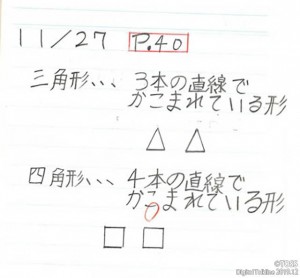 11/27 P.40
三角形、、、3本の直線で
かこまれている形
四角形、、、4本の直線で
かこまれている形
©TOSS
Digital Tokiwa 2019.12